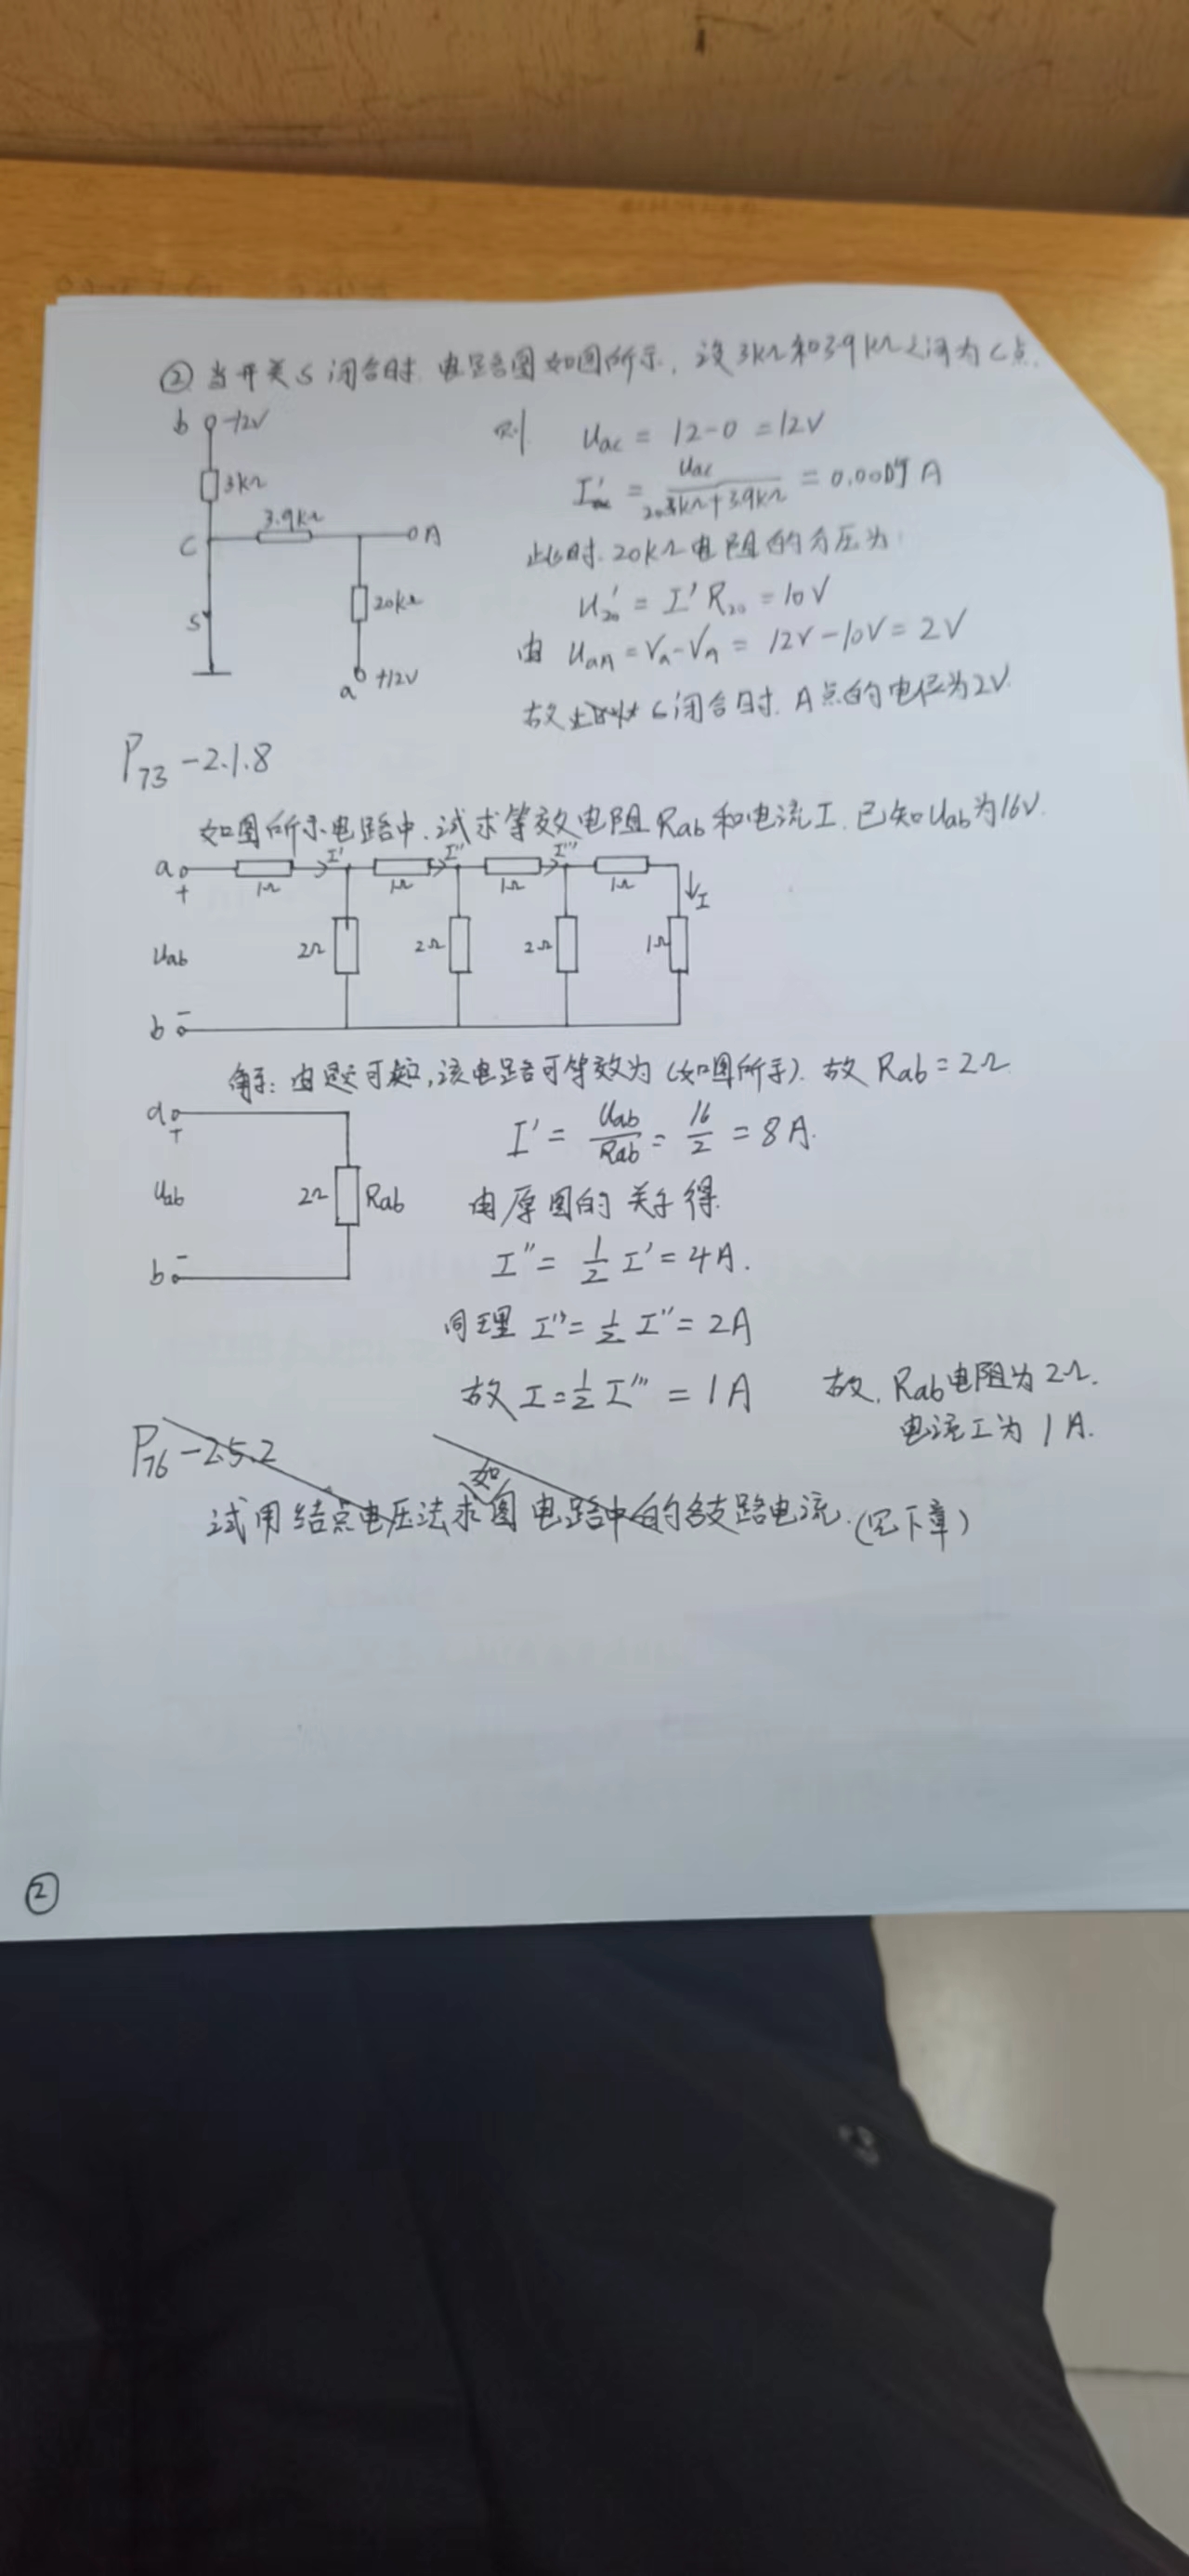 ② 当开关S闭合时.电路图如图所示,设3kΩ和3.9kΩ之间为C点.
b -12V
3kΩ
3.9kΩ
C
A
S
20kΩ
a +12V
则 Uac = 12-0 = 12V
此时.20kΩ电阻的分压为:
U₂₀' = I'R₂₀ = 10V
由 UaA = Va-VA = 12V-10V = 2V
故 S闭合时.A点的电位为2V.
P73 -2.1.8
如图所示电路中.试求等效电阻Rab和电流I.已知Uab为16V.
a I' I'' I'''
+ 1Ω 1Ω 1Ω 1Ω
I
Uab 2Ω 2Ω 2Ω 1Ω
b -
解:由题可知,该电路可等效为(如图所示).故Rab=2Ω
a
+
Uab 2Ω Rab
b -
I' = Uab/Rab = 16/2 = 8A.
由原图的关系得.
I'' = 1/2 I' = 4A.
同理 I''' = 1/2 I'' = 2A
故 I = 1/2 I''' = 1A
故.Rab电阻为2Ω.
电流I为1A.
P76 -2.5.2
试用结点电压法求如图电路中的各支路电流.(见下章)
②